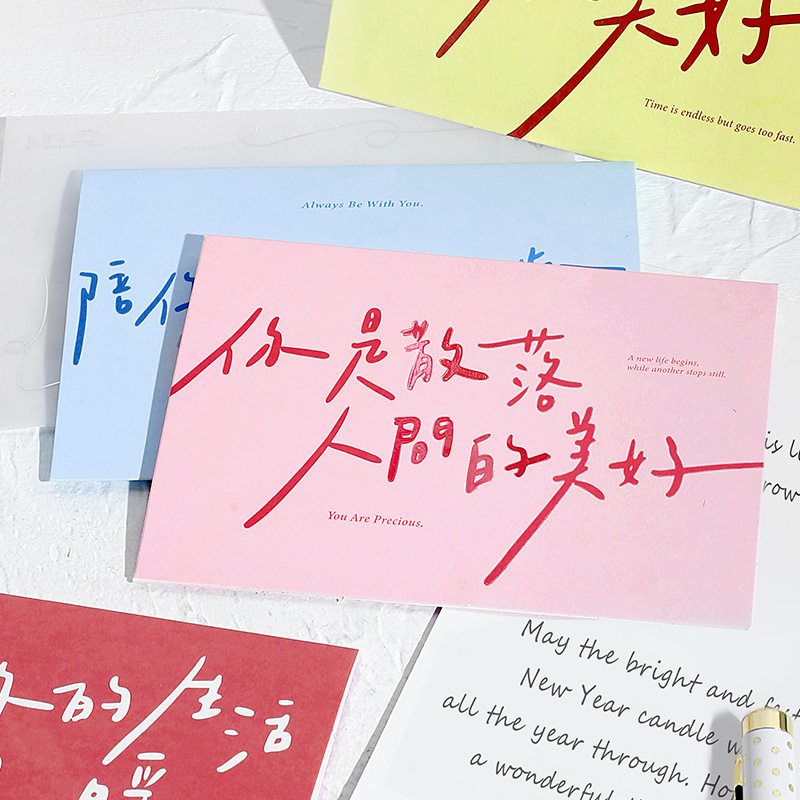 美好
Time is endless but goes too fast.
Always Be With You.
陪你
你是散落
人間的美好
A new life begins,
while another stops still.
You Are Precious.
的生活
暖
May the bright and
New Year candle
all the year through.
a wonderful